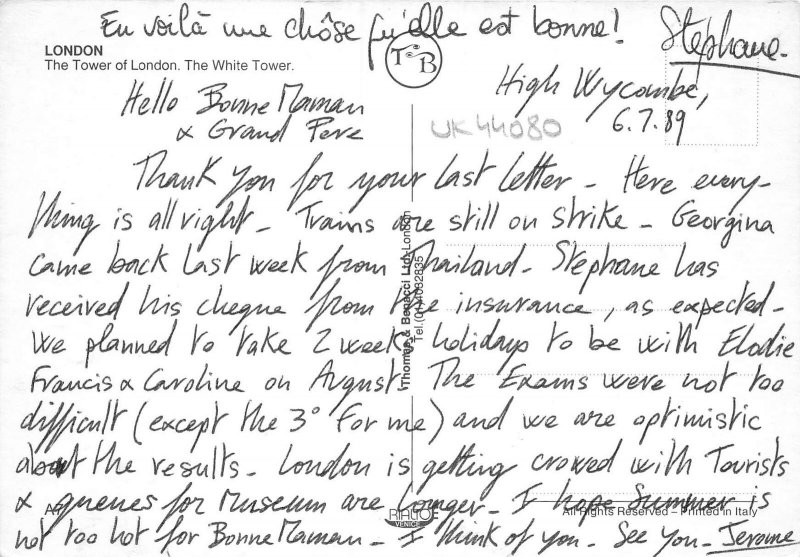 En voilà une chôse qu'elle est bonne!
Stephane.
LONDON
The Tower of London. The White Tower.
TB
High Wycombe,
6.7.89
UK44080
Hello Bonne Maman
& Grand Pere
Thank you for your last letter - Here every-
thing is all right - Trains are still on strike - Georgina
came back last week from Thailand - Stephane has
received his cheque from the insurance, as expected -
We planned to take 2 weeks holidays to be with Elodie
Francis & Caroline on August. The Exams were not too
difficult (except the 3° for me) and we are optimistic
about the results - London is getting crowed with Tourists
& queues for Museum are longer - I hope Summer is
not too hot for Bonne Maman - I think of you - See you - Jerome
Thomas & Benacci Ltd. London
Tel. (01) 4032835
RIALTO
VENICE
All Rights Reserved - Printed in Italy